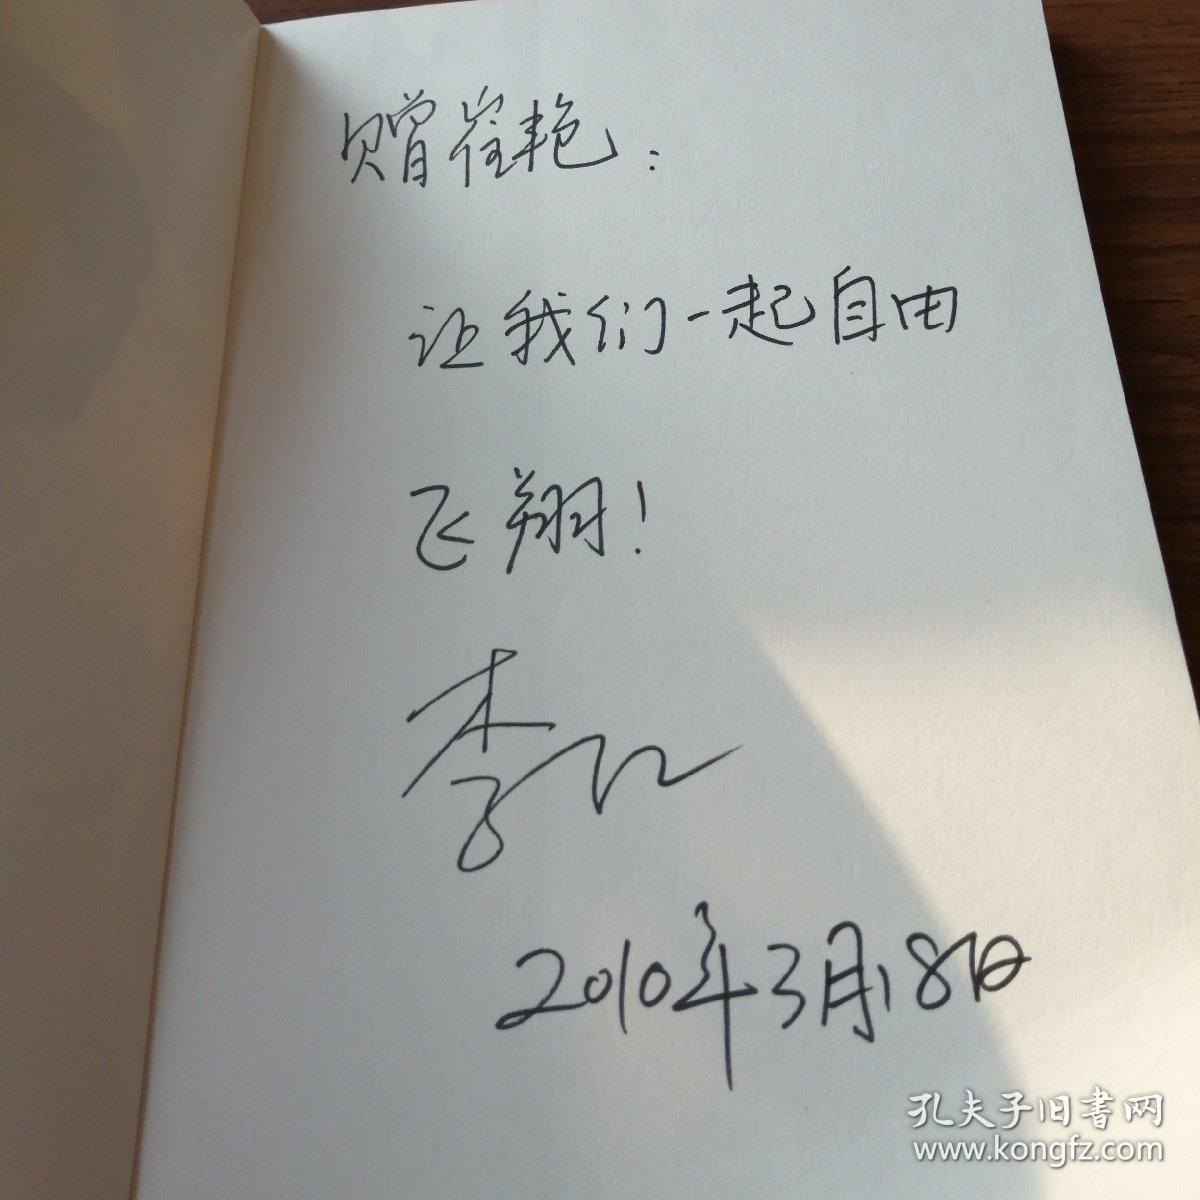 赠崔艳：
让我们一起自由
飞翔！
李
2010年3月18日
孔夫子旧书网
www.kongfz.com